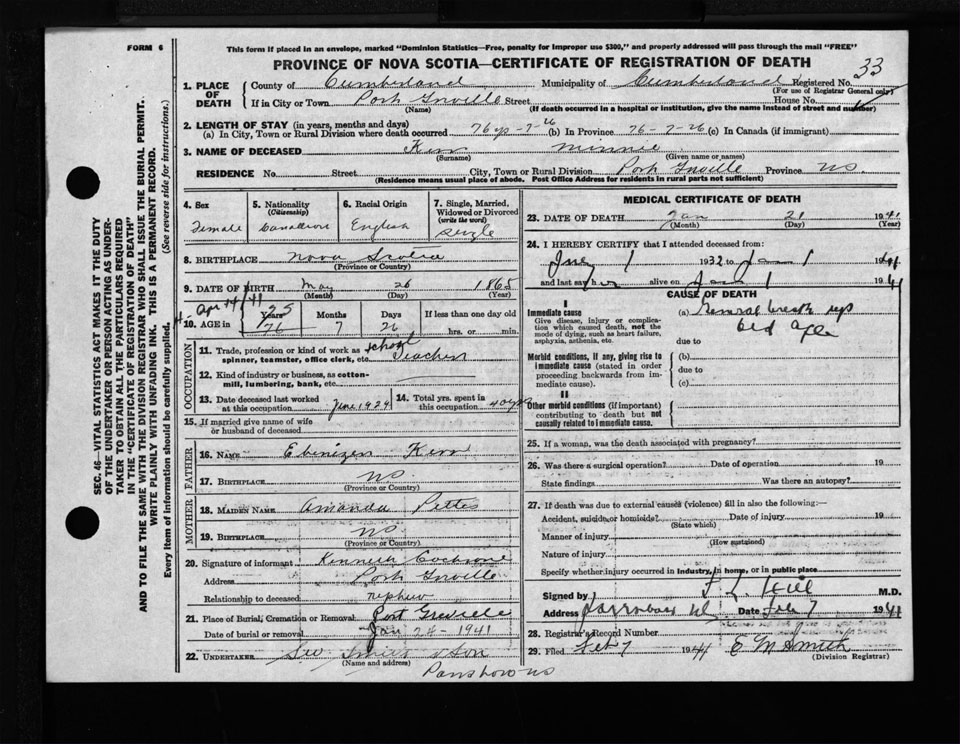 FORM 6
This form if placed in an envelope, marked "Dominion Statistics—Free, penalty for improper use $300," and properly addressed will pass through the mail "FREE"
PROVINCE OF NOVA SCOTIA—CERTIFICATE OF REGISTRATION OF DEATH
33
1. PLACE OF DEATH
County of Cumberland Municipality of Cumberland Registered No.
(For use of Registrar General only)
If in City or Town Port Greville Street House No.
(Name) (If death occurred in a hospital or institution, give the name instead of street and number)
2. LENGTH OF STAY (in years, months and days)
(a) In City, Town or Rural Division where death occurred 76 yr-7-26 (b) In Province 76-7-26 (c) In Canada (if immigrant)
3. NAME OF DECEASED Kerr Minnie
(Surname) (Given name or names)
RESIDENCE No. Street City, Town or Rural Division Port Greville Province NS.
(Residence means usual place of abode. Post Office Address for residents in rural parts not sufficient)
4. Sex
Female
5. Nationality (Citizenship)
Canadian
6. Racial Origin
English
7. Single, Married, Widowed or Divorced (write the word)
Single
8. BIRTHPLACE Nova Scotia
(Province or Country)
9. DATE OF BIRTH May 26 1865
(Month) (Day)
Apr 14/41
10. AGE in
Years 75 76
Months 7
Days 26
If less than one day old
hrs. or min.
OCCUPATION
11. Trade, profession or kind of work as spinner, teamster, office clerk, etc. School Teacher
12. Kind of industry or business, as cotton-mill, lumbering, bank, etc.
13. Date deceased last worked at this occupation June 1924
14. Total yrs. spent in this occupation 40 yrs
15. If married give name of wife or husband of deceased
FATHER
16. NAME Ebenizer Kerr
17. BIRTHPLACE NS
(Province or Country)
MOTHER
18. MAIDEN NAME Amanda Pettes
19. BIRTHPLACE NS
(Province or Country)
20. Signature of informant Kenneth Cochrane
Address Port Greville
Relationship to deceased nephew
21. Place of Burial, Cremation or Removal Port Greville
Date of burial or removal Jan 24-1941
22. UNDERTAKER & Son
(Name and address)
Parrsboro NS
MEDICAL CERTIFICATE OF DEATH
23. DATE OF DEATH Jan 21 1941
(Month) (Day) (Year)
24. I HEREBY CERTIFY that I attended deceased from:
1 1932 to Jan 1 1941
and last say her alive on Jan 1 1941
CAUSE OF DEATH
I
Immediate cause
Give disease, injury or complication which caused death, not the mode of dying, such as heart failure, asphyxia, asthenia, etc.
(a) General
old age
due to
Morbid conditions, if any, giving rise to immediate cause (stated in order proceeding backwards from immediate cause).
(b)
due to
(c)
II
Other morbid conditions (if important) contributing to death but not causally related to immediate cause.
25. If a woman, was the death associated with pregnancy?
26. Was there a surgical operation? Date of operation 19
State findings Was there an autopsy?
27. If death was due to external causes (violence) fill in also the following:—
Accident, suicide or homicide? Date of injury 19
(State which)
Manner of injury
(How sustained)
Nature of injury
Specify whether injury occurred in Industry, in home, or in public place
Signed by F. L. Hill M.D.
Address Parrsboro NS Date Feb 7 1941
28. Registrar's Record Number
29. Filed Feb 7 1941 E M Smith
(Division Registrar)
SEC. 46—VITAL STATISTICS ACT MAKES IT THE DUTY
OF THE UNDERTAKER OR PERSON ACTING AS UNDER-
TAKER TO OBTAIN ALL THE PARTICULARS REQUIRED
IN THE "CERTIFICATE OF REGISTRATION OF DEATH"
AND TO FILE THE SAME WITH THE DIVISION REGISTRAR WHO SHALL ISSUE THE BURIAL PERMIT.
WRITE PLAINLY WITH UNFADING INK. THIS IS A PERMANENT RECORD.
Every item of information should be carefully supplied. (See reverse side for instructions.)